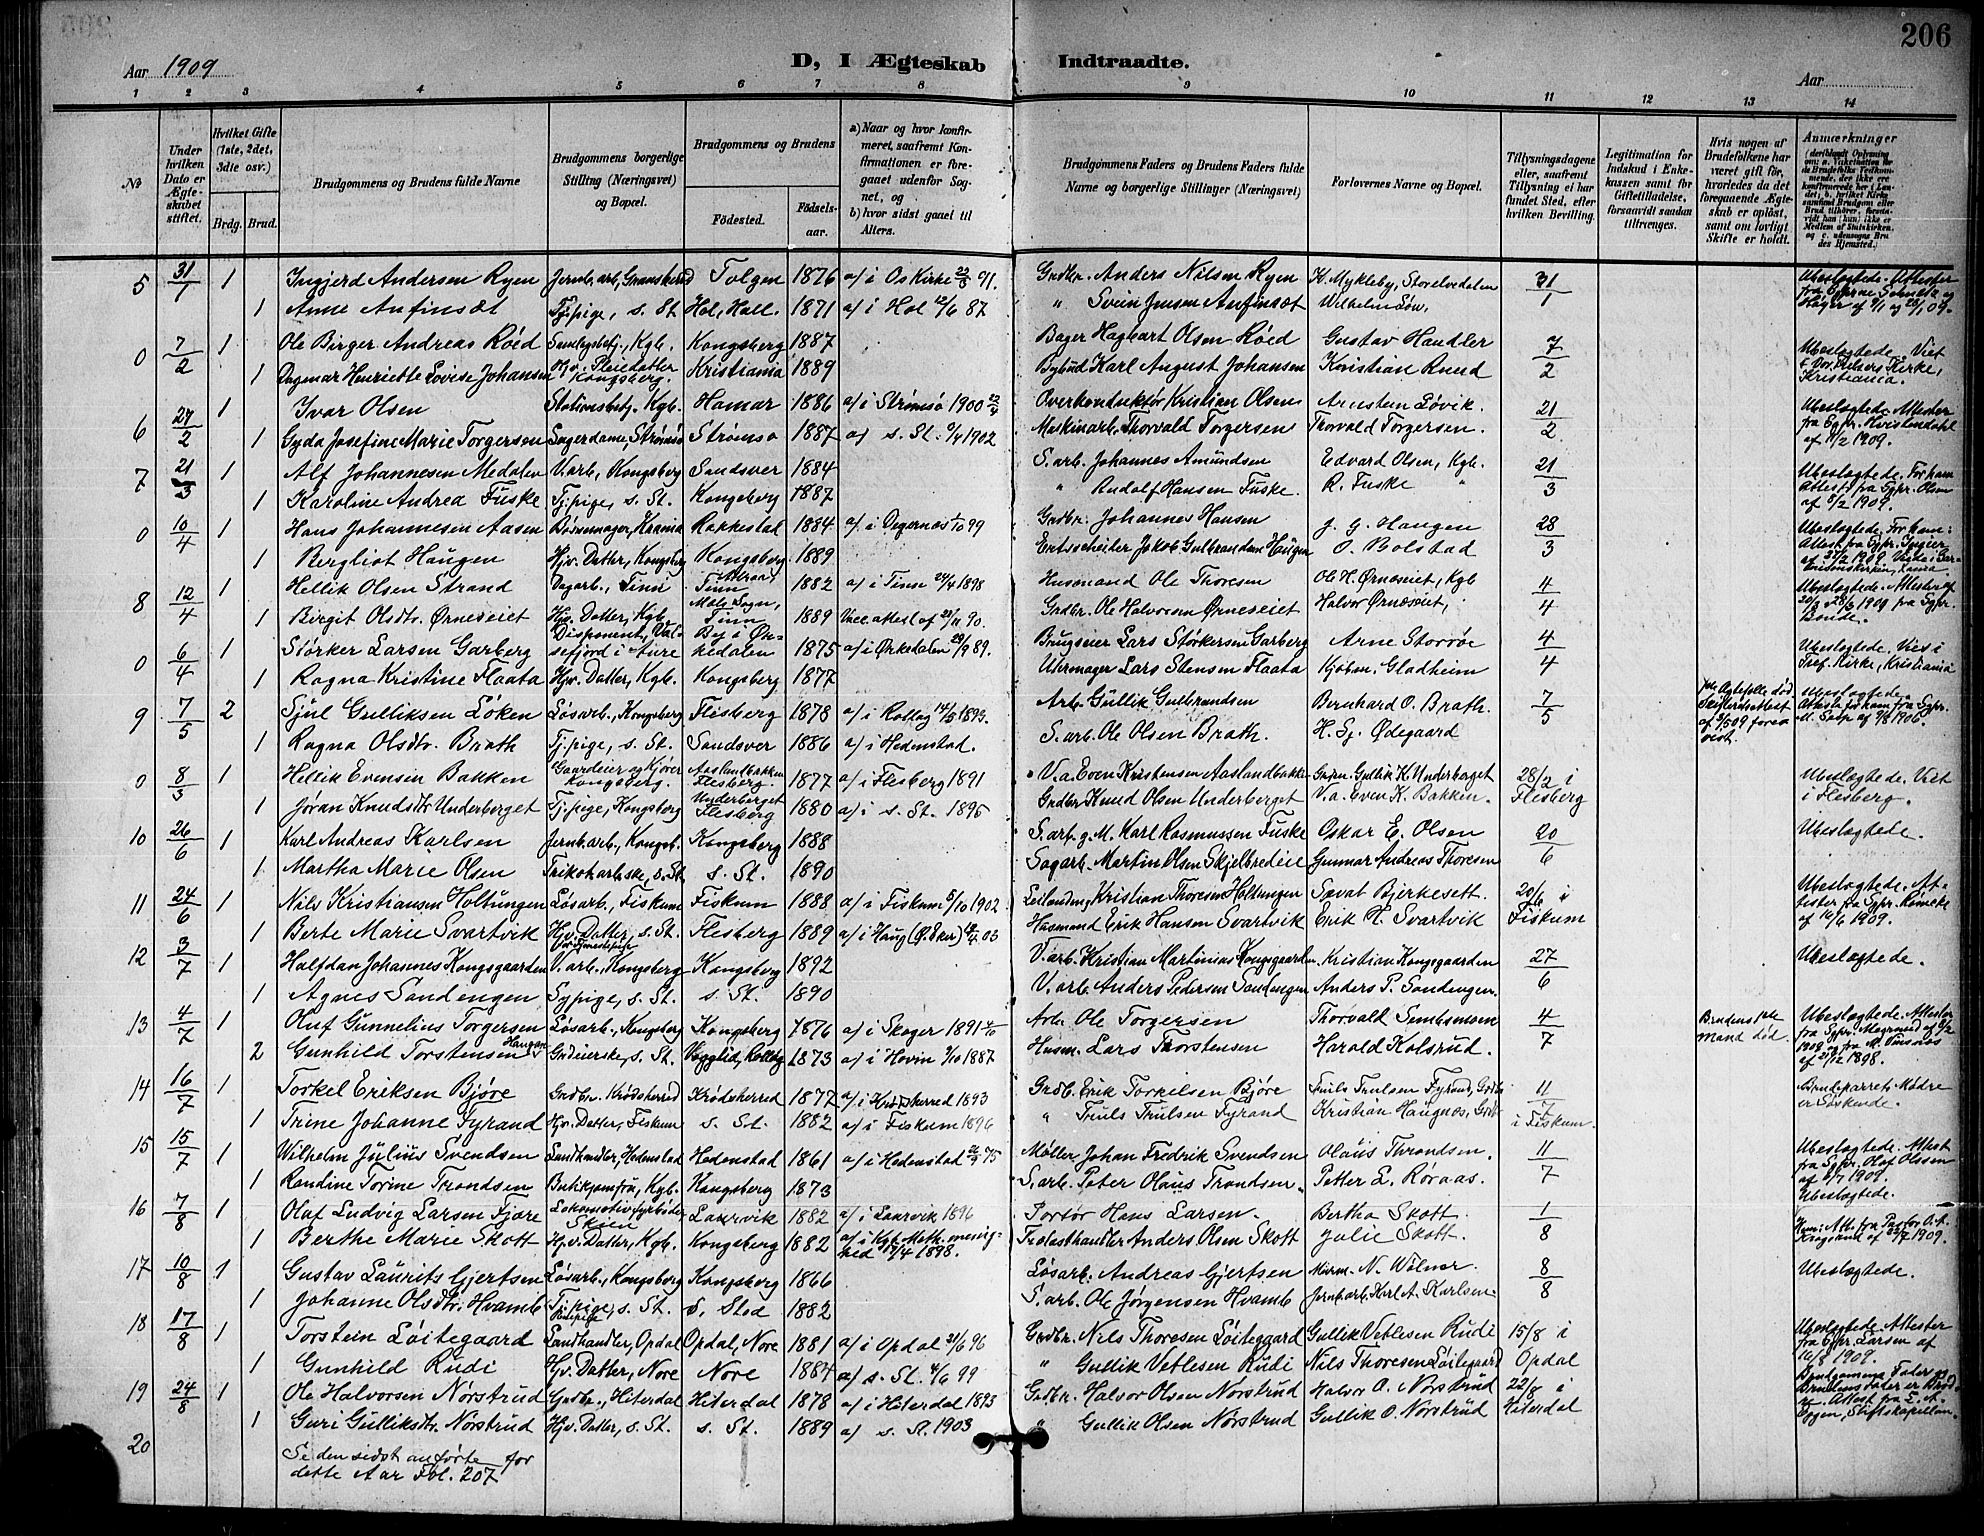 206
Aar 1909
D, I Ægteskab Indtraadte.
Aar
1 2 3 4 5 6 7 8 9 10 11 12 13 14
No
Under hvilken Dato er Ægteskabet stiftet.
Hvilket Gifte (1ste, 2det, 3dte osv.)
Brdg. Brud.
Brudgommens og Brudens fulde Navne
Brudgommens borgerlige Stilling (Næringsvei) og Bopæl.
Brudgommens og Brudens
Fødested.
Fødselsaar.
a) Naar og hvor konfirmeret, saafremt Konfirmationen er foregaaet udenfor Sognet, og
b) hvor sidst gaaet til Alters.
Brudgommens Faders og Brudens Faders fulde Navne og borgerlige Stillinger (Næringsvei)
Forlovernes Navne og Bopæl.
Tillysningsdagene eller, saafremt Tillysning ei har fundet Sted, efter hvilken Bevilling.
Legitimation for Indskud i Enkekassen samt for Giftetilladelse, forsaavidt saadan tiltrænges.
Hvis nogen af Brudefolkene har været gift før, hvorledes da det foregaaende Ægteskab er opløst, samt om lovligt Skifte er holdt.
Anmærkninger
5 31/1 1 Ingjerd Andersen Ryen Jernb.arb., Gransherred Tolgen 1876 a/ i Os Kirke Grdbr. Anders Nilsen Ryen K. Mykleby, Storelvedalen 31/1 Ubeslægtede. Attester
1 Anne Aufinsæt Tj.pige, s. St. Hol, Hall. 1871 a/ i Hol 12/6 87 " Svein Jensen Aufinsæt Wilhelmsøn,
0 7/2 1 Ole Birger Andreas Röed Kgb. Kongsberg 1887 Bager Hagbart Olsen Röed Gustav Handler 7/2 Ubeslægtede. Viet
1 Dagmar Henriette Lovise Johansen Hjv. Pleiedatter Kongsberg. Kristiania 1889 Bybud Karl August Johansen Kristian Ruud i Vor Frelsers Kirke, Kristiania.
6 27/2 1 Ivar Olsen Stationsbetj. Kgb. Hamar 1886 a/ i Strömsö 1900 Overkonduktör Kristian Olsen Arnstein Løvik. 21/2 Ubeslægtede. Attester
1 Gyda Josefine Marie Torgersen Sagerdame, Strømsø Strömsö 1887 a/ s. St. 1902 Maskinarb. Thorvald Torgersen Thorvald Torgersen. af 11/2 1909.
7 21/3 1 Alf Johannesen Medalen V.arb., Kongsberg Sandsvær 1884 S.arb. Johannes Amundsen Edvard Olsen, Kgb. 21/3 Ubeslægtede. For ham
1 Karoline Andrea Fuske Tj.pige, s. St. Kongsberg 1887 " Rudolf Hansen Fuske. R. Fuske " Attest fra Sgpr. Olsen af 8/2 1909.
0 10/4 1 Hans Johannesen Aasen Börsemager, Krania Rakkestad 1884 a/ i Degernæs 1/10 99 Grdbr. Johannes Hansen J. G. Haugen 28/3 Ubeslægtede. For ham:
1 Bergliot Haugen Hjv. Datter, Kongsberg Kongsberg 1889 Ertsscheider Jakob Gulbrandsen Haugen O. Bolstad
8 12/4 1 Hellik Olsen Strand Dagarb., Tinn Tinn 1882 a/ i Tinn 24/4 1898 Husmand Ole Thoresen Ole H. Ørneseiet, Kgb 4/4 Ubeslægtede. Attester af
1 Birgit Olsdtr. Ørneseiet Hjv. Datter, Kgb. Tinn 1889 Vacc.attest af 23/11 90. Grdbr. Ole Halvorsen Ørneseiet Halvor Ørneseiet,
0 6/4 1 Størker Larsen Garberg Disponent, Valsefjord i Aure Bej i Ørkedalen 1875 a/ i Ørkedalen 29/9 89. Brugseier Lars Størkersen Garberg Arne Storröe 4/4 Ubeslægtede. Viet i
1 Ragna Kristine Flaata Hjv. Datter, Kgb. Kongsberg 1877 Uhrmager Lars Stensen Flaata Kjöbm. Gladheim Kirke, Kristiania
9 7/5 2 Sjul Gulliksen Løken Løsarb., Kongsberg Flesberg 1878 a/ i Rollag 14/5 1893. Arb. Güllik Gulbrandsen Bernhard O. Brath. 7/5 1ste Ægtefelle død Ubeslægtede.
1 Ragna Olsdtr. Brath Tj.pige, s. St. Sandsvær 1886 a/ i Hedenstad. S.arb. Ole Olsen Brath. H. Sj. Ødegaard
0 8/3 1 Hellik Evensen Bakken Gaardeier og Kjører Kongsberg. Aaslandbakken Flesberg. 1877 a/ i Flesberg 1891 V.a. Even Kristensen Aaslandbakke Gullik K. Underberget 28/2 i Ubeslægtede. Viet
1 Jøran Knudsdtr Underberget Tj.pige, Kongsberg Underberget Flesberg 1880 a/ i s. St. 1895 Grdbr Knud Olsen Underberget V.a. Even K. Bakken. Flesberg i Flesberg.
10 26/6 1 Karl Andreas Karlsen Jernb.arb., Kongsb. Kongsberg 1888 S.arb. g. M. Karl Rasmussen Fuske Oskar E. Olsen 20/6 Ubeslægtede.
1 Martha Marie Olsen s. St. s. St. 1890 Sagarb. Martin Olsen Skjelbredeie Gunnar Andreas Thoresen
11 24/6 1 Nils Kristiansen Holtungen Løsarb., Fiskum Fiskum 1888 a/ i Fiskum 5/10 1902. Kristian Thoresen Holtungen Bjerkesett. 20/6 i Ubeslægtede.
1 Berte Marie Svartvik Hjv. Datter, s. St. Flesberg 1889 a/ i Haug (Ø. Eker) 03 Husmand Erik Hansen Svartvik Erik H. Svartvik Fiskum af 14/6 1909.
12 3/7 1 Halfdan Johannes Kongsgaarden V.arb. Kongsberg Kongsberg 1892 V.arb. Kristian Martinius Kongsgaarden. Kristian Kongsgaarden 27/6 Ubeslægtede.
1 Agnes Sandengen Sypige, s. St. s. St. 1890 V.arb. Anders Pedersen Sandengen Anders P. Sandengen.
13 4/7 1 Oluf Gunnelius Torgersen Løsarb., Kongsberg Kongsberg 1876 a/ i Skoger 1891 Arb. Ole Torgersen Thorvald Sembsmoen 4/7 Brudens 1ste Mand død. Ubeslægtede. Attester
2 Gunhild Torstensen Haugan s. St. Veggli, Rollag 1873 a/ i Hovin 1887 Husm. Lars Thorstensen Harald Kolsrud. af 21/12 1898.
14 16/7 1 Torkel Eriksen Bjøre Grdbr. Krødsherred Krødsherred 1877 a/ i Krødsherred 1893 Grdb. Erik Torkilsen Bjøre Truls Trulsen Fyrand, Grdbr 11/7 Brudeparrets Mødre
1 Trine Johanne Fyrand Hjv. Datter, Fiskum s. St. 1882 a/ i Fiskum 1896 " Truls Trulsen Fyrand Kristian Haugnæs, i Fiskum. er Søskende.
15 15/7 1 Wilhelm Julius Svendsen Landhandler, Hedenstad Hedenstad 1861 a/ i Hedenstad 75 Møller Johan Fredrik Svendsen Olaüs Throndsen. 11/7 Ubeslægtede. Attest
1 Randine Torine Trondsen Butikjomfru, Kgb. Kongsberg 1873 S.arb. Peter Olaus Trondsen. Petter L. Røraas. fra Sgpr. Olaf Olssen
16 7/8 1 Olaf Ludvig Larsen Fjære Lokomotivfyrbøder Skien Laurvik 1882 a/ i Laurvik 1896 Portør Hans Larsen. Bertha Skott. 1/8 Ubeslægtede.
1 Berthe Marie Skott Hjv. Datter, Kgb. Kongsberg 1882 a/ i Kgb. Meth. menighed 17/4 1898. Trælasthandler Anders Olsen Skott Julie Skott.
17 10/8 1 Gustav Laurits Gjertsen Løsarb., Kongsberg Kongsberg 1866 Løsarb. Andreas Gjertsen N. Wølner. 8/8 Ubeslægtede.
1 Johanne Olsdtr. Hvamb Tj.pige, s. St. s. Sted 1882 S.arb. Ole Jørgensen Hvamb Jernb.arb. Karl A. Karlsen.
18 17/8 1 Torstein Løitegaard Landhandler, Opdal Opdal, Nore 1881 a/ i Opdal 21/6 96 Grdbr. Nils Thoresen Løitegaard Gullik Vetlesen Rudi 15/8 i Ubeslægtede. Attester
1 Gunhild Rudi Hjv. Datter, Nore Nore 1884 a/ s. St. 4/6 99 " Gullik Vetlesen Rudi Nils Thoresen Løitegaard Opdal fra Sgpr. Larsen af 14/8 1909.
19 24/8 1 Ole Halvorsen Nørstrud Grdbr., Hiterdal Hiterdal 1878 a/ i Hiterdal 1893 Grdbr. Halvor Olsen Nørstrud Halvor O. Nørstrud 22/8 i Brudgommens Fader og
1 Guri Gulliksdtr. Nørstrud Hjv. Datter, s. St. s. St. 1889 a/ s. St. 1903 " Gullik Olsen Nørstrud Gullik O. Nørstrud Hiterdal Stiftskapellan.
20 Se den sidst anførte for
dette Aar Fol. 207